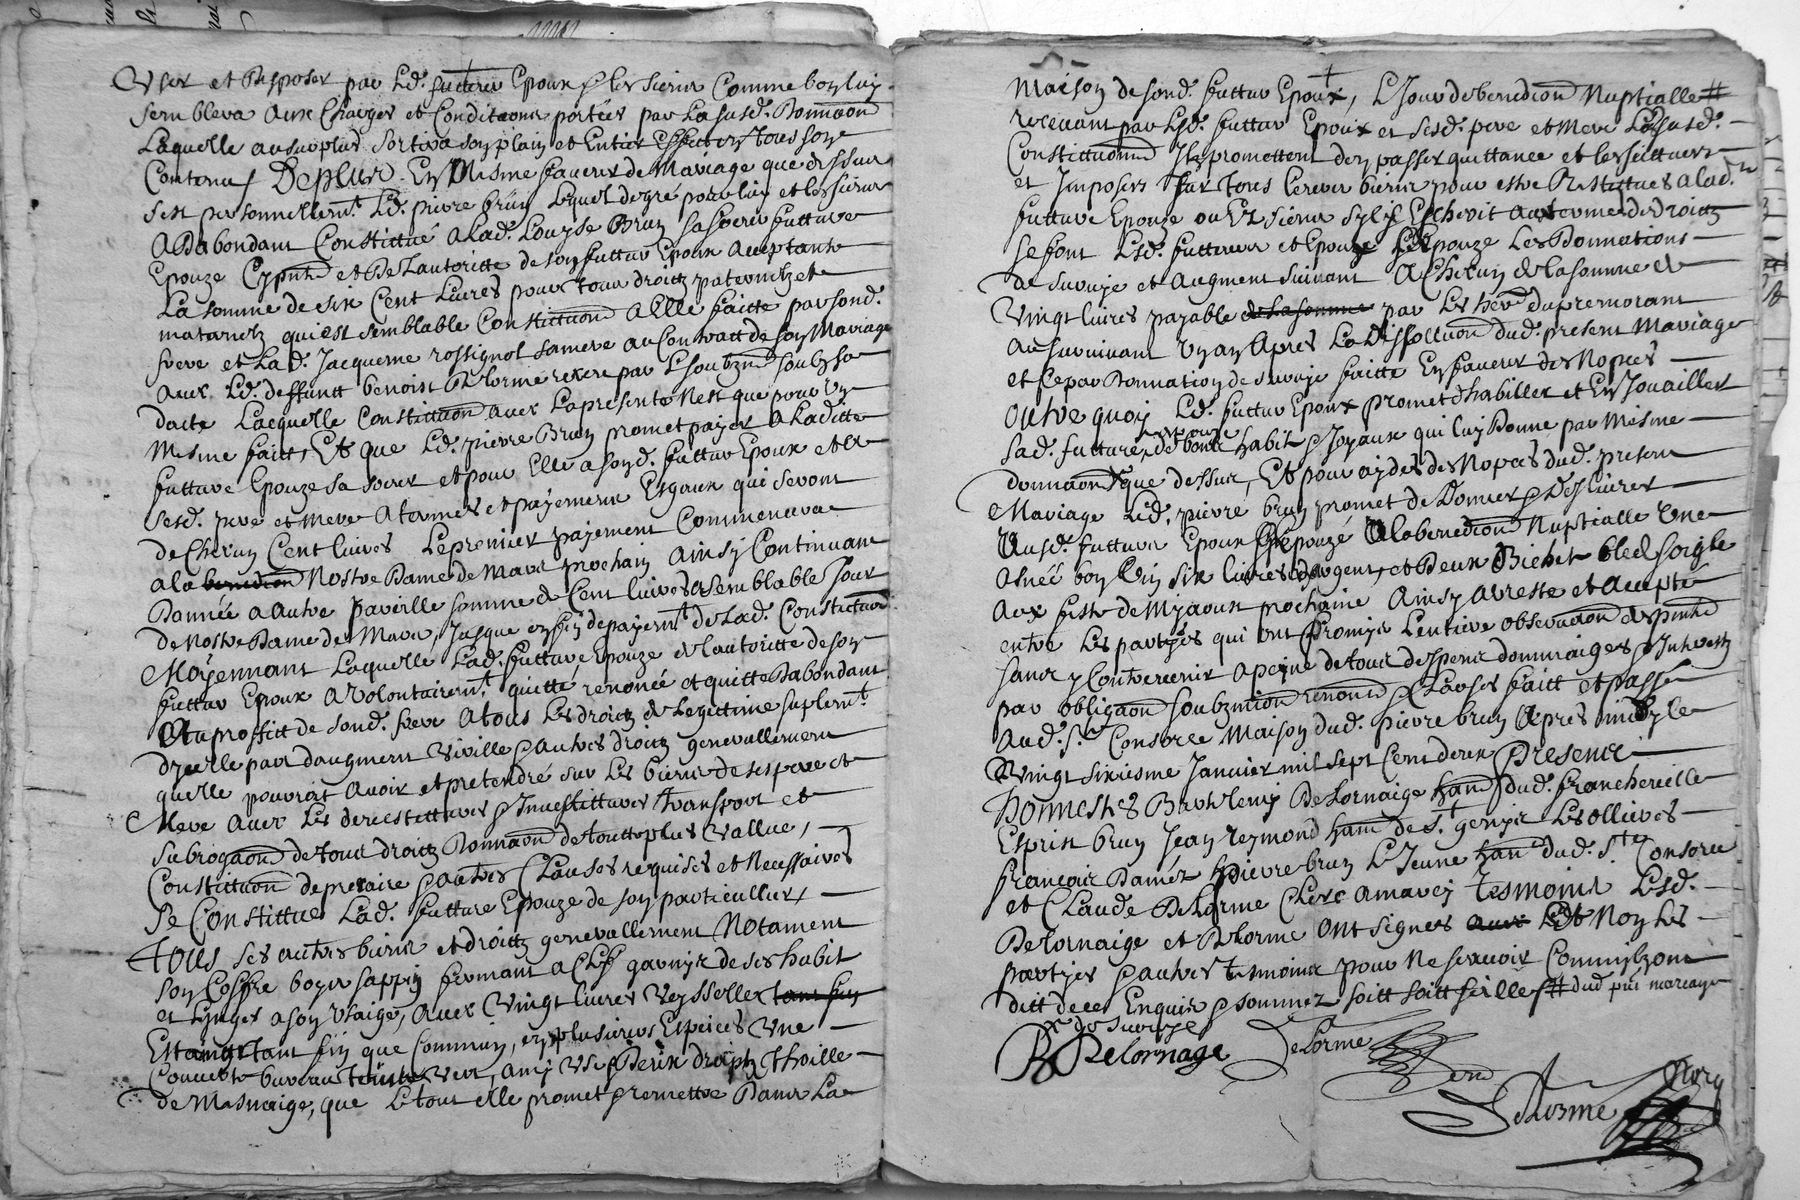 User et disposer par Led. futteur Epoux & les siens Comme bon luy
semblera aux Charges et Conditions portées par La susd. Donnaôn
Laquelle au surplus sortira son plain et Entier Effect en tous son
Contenu / De plus En Mesme faveur de Mariage que dessus
s'est personnellemt. Led. pierre brun Lequel de gré pour luy et les siens
A Dabondant Constittué a Lad. Louyse Brun sa soeur futture
Epouze Cypnte et De Lautoritte de son futtur Epoux Acceptante
La somme de six Cent Livres pour tous droits paternelz et
maternelz qui est semblable Constittuôn a Elle faitte par sond.
frere et La D. Jacqueme rossignol sa mere au Contratt de son Mariage
avec Led. deffuntt benoist Delorme receu par Le soubzné soubz sa
datte Laequelle Constittuôn avec La presente N'est que pour Un
Mesme faitt, Et que Led. pierre Brun promet payer a Laditte
futture Epouze sa soeur et pour Elle a sond. futtur Epoux et a
sesd. pere et mere A termes et payement Esgaux qui seront
de Chacun Cent livres Le premier payement Commencera
a la benedion Nostre Dame de Mars prochain Ainsy Continuant
D'année a autre pareille somme de Cent livres a semblable Jour
de Nostre Dame de Mars, Jusque en fin de payemt. de Lad. Constituôn
Moyennant Laquelle Lad. futture Epouze de Lautoritte de son
futtur Epoux a Volontairemt. quitté renoncé et quitte Dabondant
Au proffitt de sond. frere A tous Les droitz de Legittime suplemt.
d'icelle part daugment Viville & autres droitz generallement
quelle pouvroit avoir et pretendre sur Les biens de ses pere et
Mere Avec Les devestittures & Investittures transport et
subrogaôn de tous droitz Donnaôn de toutte plus Vallue,
Constittuôn de precaire & autres Clauses requises et Necessaires
Se Constittue Lad. futture Epouze de son particullier,
tous ses autres biens et droitz generallement Notament
son Coffre boys sappin fermant a Clef garnye de ses habit
et Linges a son Usaige, Avec Vingt livres Vaysselle tant fin
Estaing tant fin que Commun, en plusieurs Espéces Une
Couverte bureau teinte Vert, amy Usé, Deux draptz thoille
de Mesnaige, que Le tout elle promet & remettre Dans La
Maison de sond. futtur Epoux, Le Jour de benediôn Nuptialle #
recevant par Lesd. futtur Epoux et sesd. pere et Mere La susd.
Constittuôn Ils promettent d'en passer quittance et les settuers
et Imposer sur tous Leurs biens pour estre Restittués a lad.
futture Epouze ou Es siens sylz Eschevit au terme de droitz
se font Lesd. futteur et Epouze Les Donnations
de survye et Augment suivant A Chacun de la somme de
Vingt livres payable de la somme par Les hers. du premorant
au survivant Un an Apres La Dissolluôn dud. present Mariage
et Ce par Donnation de survye faitte En faveur des Nopces
outre quoy Led. futtur Epoux promet d'habiller et En Jouailler
sad. futture Epouze de bons habit & Joyaux qui luy Donne par Mesme
donnaôn que dessus, Et pour aydes des Nopces dud. present
Mariage Led. pierre brun promet de Donner & Deslivrer
Ausd. futteur Epoux Epouzé A la benediôn Nuptialle Une
Asnée bon Vin six livres d'argent, et Deux Bichet bled soigle
Aux feste de Myaoust prochaine Ainsy Arreste et accepté
entre Les partyes qui ont Promis Lentiere observaôn des pntes
sans y Contrevenir a peine de tous despens dommaiges & Interestz
par obligaôn soubzmiôn renonôn & Clauses faitt et passé
Aud. St. Consorce Maison dud. pierre brun Apres midy le
Vingt sixiesme Janvier mil sept Cent deux Presence
Honnestes Barthelemy Delornaige han dud. francheville
Esprit brun Jean reymond han de St. genis Les Ollieres
francois Damez pierre brun Le Jeune han dud. Ste Consorce
et Claude Delorme Clerc a mavey tesmoins Lesd.
Delornaige et Delorme ont signés avec Led. Non Les
partyes & autres tesmoins pour Ne scavoir Comme ilz ont
ditt de ce Enquis & sommez soitt soitt sceillé / # dud pnt mariage
X de survye
Delornage Delorme
Delorme